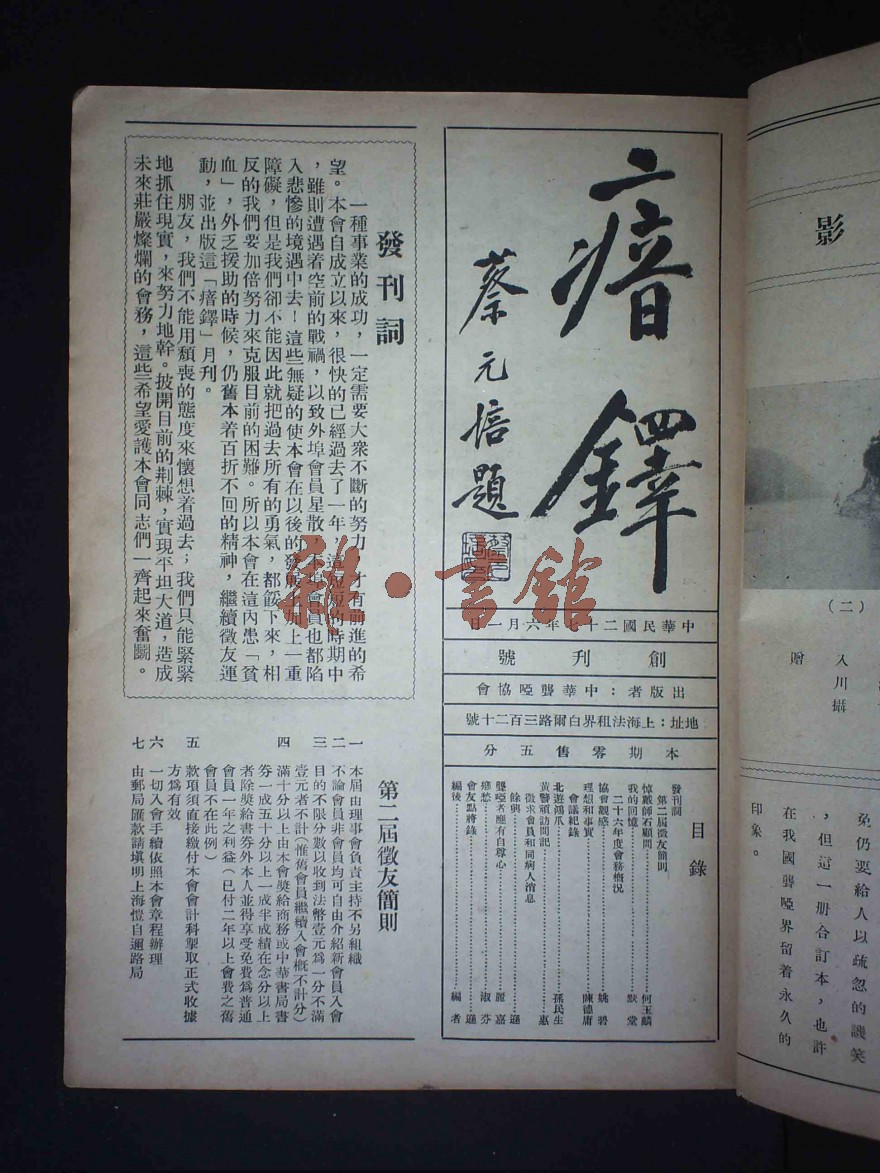 瘖鐸
蔡元培題
中華民國二十七年六月一日
創刊號
出版者：中華聾啞協會
地址：上海法租界白爾路三百二十號
本期零售五分
目錄
發刊詞
第二屆徵友簡則
悼戴師石顧問…何玉麟
我的回憶…默堂
二十六年度會務概況
協會觀感…姚碧
理想和事實…陳德庸
會議紀錄
北遊鴻爪…孫民生
黃警頑訪問記…惠
徵求會員和同病人消息
餘興…遜
聾啞者應有自尊心…麗嘉
殘愁…淑芬
會友點將錄…遜
編後…編者
發刊詞
一種事業的成功，一定需要大衆不斷的努力，才有前進的希
望。本會自成立以來，很快的已經過去了一年，這短短的時期中
，雖則遭遇着空前的戰禍，以致外埠會員星散，本埠會員也都陷
入悲慘的境遇中去！這些無疑的使本會在以後的發展上加上一重
障礙，但是我們卻不能因此就把過去所有的勇氣，都餒下來，相
反的我們要加倍努力來克服目前的困難。所以本會在這內患「貧
血」，外乏援助的時候，仍舊本着百折不回的精神，繼續徵友運
動，並出版這「瘖鐸」月刊。
朋友，我們不能用頹喪的態度來懷想着過去；我們只能緊緊
地抓住現實，來努力地幹。披開目前的荆棘，實現平坦大道，造成
未來莊嚴燦爛的會務，這些希望愛護本會同志們一齊起來奮鬭。
第二屆徵友簡則
一 本屆由理事會負責主持不另組織
二 不論會員非會員均可自由介紹新會員入會
三 目的不限分數以收到法幣壹元爲一分不滿
壹元者不計（惟舊會員繼續入會概不計分）
四 滿十分以上由本會獎給商務或中華書局書
券一成五十分以上一成半成績在念分以上
者除獎給書券外本人並得享受免費爲普通
會員一年之利益（已付二年以上會費之舊
會員不在此例）
五 款項須直接繳付本會會計科掣取正式收據
方爲有效
六 一切入會手續依照本會章程辦理
七 由郵局匯款請塡明上海愷自邇路局
影
（二）
入川攝
贈
免仍要給人以疏忽的譏笑
，但這一册合訂本，也許
在我國聾啞界留着永久的
印象。
雜·書館